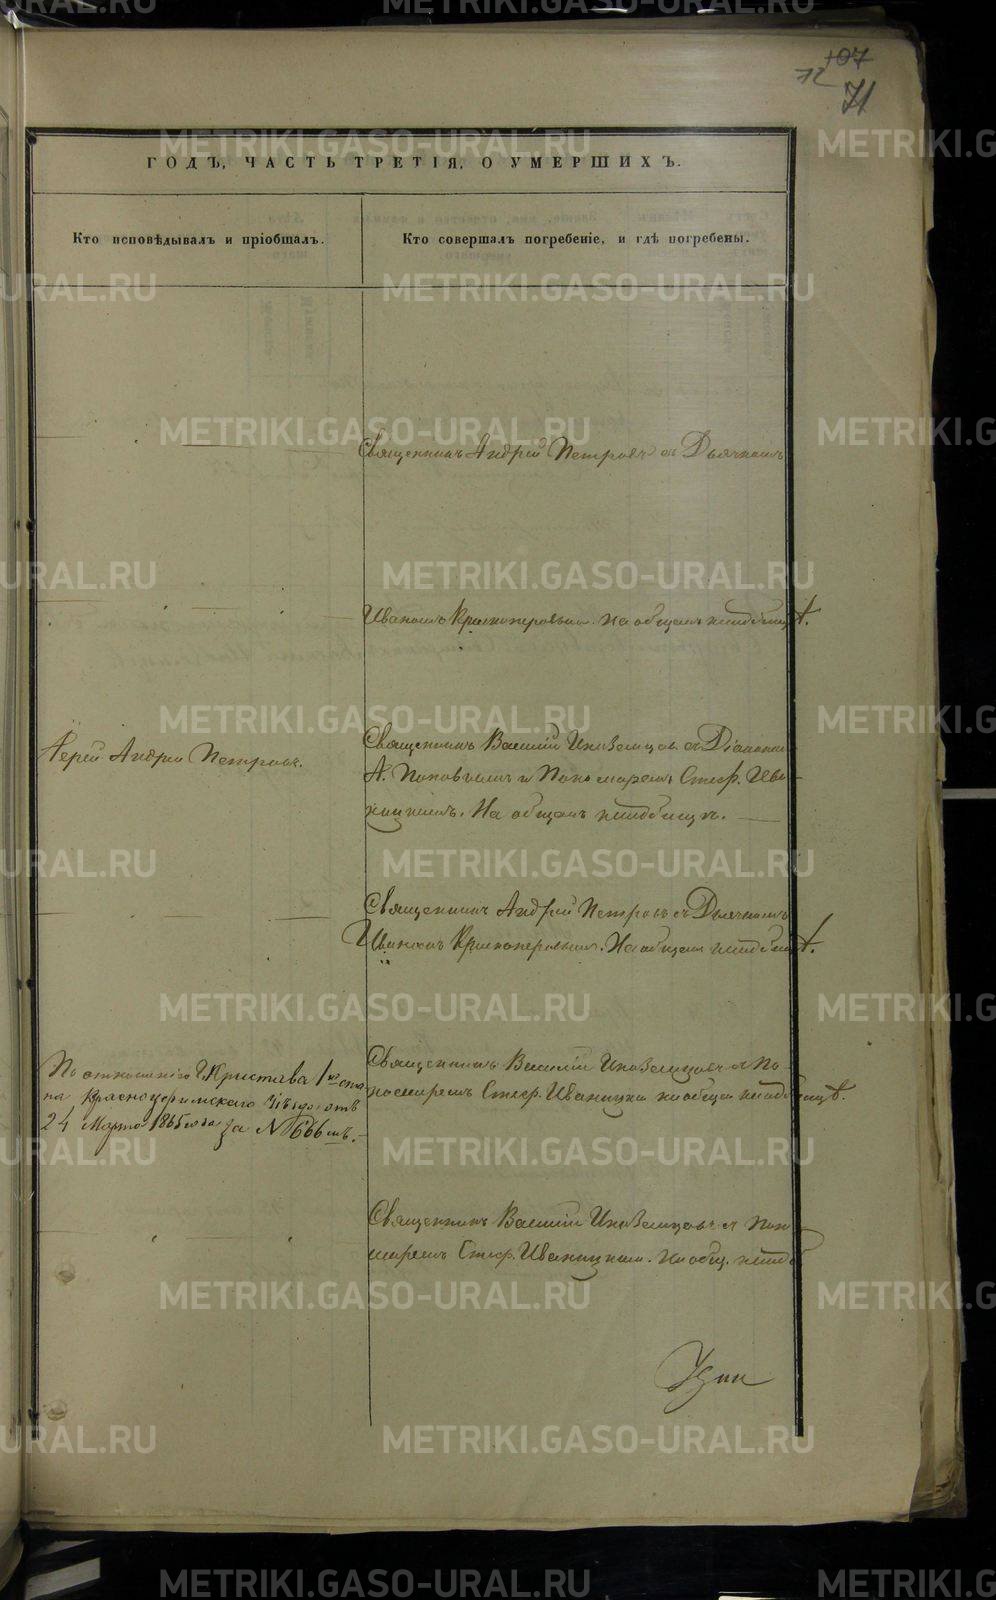 107
72
71
ГОДЪ, ЧАСТЬ ТРЕТІЯ, О УМЕРШИХЪ.
Кто исповѣдывалъ и пріобщалъ.
Кто совершалъ погребеніе, и гдѣ погребены.
Священникъ Андрей Петровъ съ Дьячкомъ
Иваномъ Красноперовымъ. На общемъ кладбищѣ.
Іерей Андрей Петровъ.
Священникъ Василій Иноземцовъ съ Діакономъ
А. Поповымъ и Пономаремъ Стеф. Ива-
ницкимъ. На общемъ кладбищѣ.
Священникъ Андрей Петровъ съ Дьячкомъ
Иваномъ Красноперовымъ. На общемъ кладбищѣ.
По отношенію Г. Пристава 1го ста-
на Красноуфимскаго Уѣзда отъ
24 Марта 1865 года за № 666мъ.
Священникъ Василій Иноземцовъ съ По-
номаремъ Стеф. Иваницким на общем кладбищѣ.
Священникъ Василій Иноземцовъ съ Поно-
маремъ Стеф. Иваницким. На общ. кладб.
METRIKI.GASO-URAL.RU